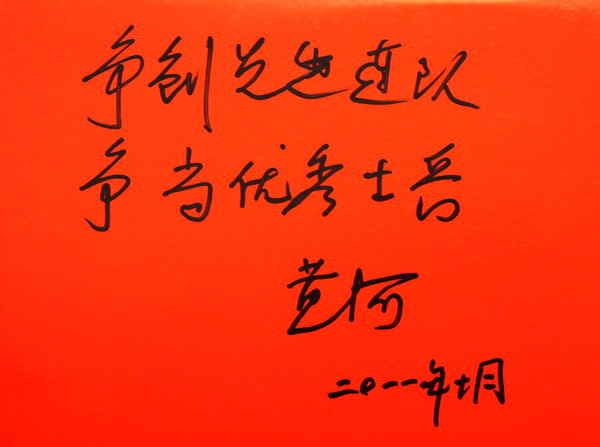 争创先进连队
争当优秀士兵
黄河
二〇一一年十月